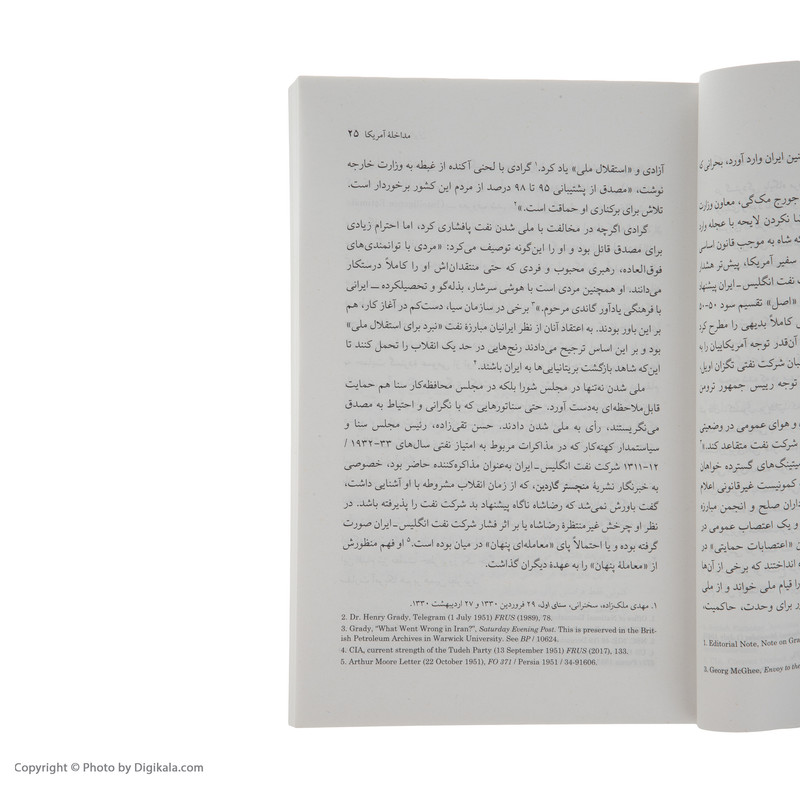 مداخلهٔ آمریکا ۲۵
آزادی و «استقلال ملی» یاد کرد.۱ گرادی با لحنی آکنده از غبطه به وزارت خارجه
نوشت، «مصدق از پشتیبانی ۹۵ تا ۹۸ درصد از مردم این کشور برخوردار است.
تلاش برای برکناری او حماقت است.»۲
گرادی اگرچه در مخالفت با ملی شدن نفت پافشاری کرد، اما احترام زیادی
برای مصدق قائل بود و او را این‌گونه توصیف می‌کرد: «مردی با توانمندی‌های
فوق‌العاده، رهبری محبوب و فردی که حتی منتقدان‌اش او را کاملاً درستکار
می‌دانند. او همچنین مردی است با هوشی سرشار، بذله‌گو و تحصیلکرده ــ ایرانی
با فرهنگی یادآور گاندی مرحوم.»۳ برخی در سازمان سیا، دست‌کم در آغاز کار، هم
بر این باور بودند. به اعتقاد آنان از نظر ایرانیان مبارزهٔ نفت «نبرد برای استقلال ملی»
بود و بر این اساس ترجیح می‌دادند رنج‌هایی در حد یک انقلاب را تحمل کنند تا
این‌که شاهد بازگشت بریتانیایی‌ها به ایران باشند.۴
ملی شدن نه‌تنها در مجلس شورا بلکه در مجلس محافظه‌کار سنا هم حمایت
قابل‌ملاحظه‌ای به‌دست آورد. حتی سناتورهایی که با نگرانی و احتیاط به مصدق
می‌نگریستند، رأی به ملی شدن دادند. حسن تقی‌زاده، رئیس مجلس سنا و
سیاستمدار کهنه‌کار که در مذاکرات مربوط به امتیاز نفتی سال‌های ۳۳-۱۹۳۲ /
۱۲-۱۳۱۱ شرکت نفت انگلیس-ایران به‌عنوان مذاکره‌کننده حاضر بود، خصوصی
به خبرنگار نشریهٔ منچستر گاردین، که از زمان انقلاب مشروطه با او آشنایی داشت،
گفت باورش نمی‌شد که رضاشاه ناگاه پیشنهاد بد شرکت نفت را پذیرفته باشد. در
نظر او چرخش غیرمنتظرهٔ رضاشاه یا بر اثر فشار شرکت نفت انگلیس-ایران صورت
گرفته بوده و یا احتمالاً پای «معامله‌ای پنهان» در میان بوده است.۵ او فهم منظورش
از «معاملهٔ پنهان» را به عهدهٔ دیگران گذاشت.
۱. مهدی ملک‌زاده، سخنرانی، سنای اول، ۲۹ فروردین ۱۳۳۰ و ۲۷ اردیبهشت ۱۳۳۰.
2. Dr. Henry Grady, Telegram (1 July 1951) FRUS (1989), 78.
3. Grady, "What Went Wrong in Iran?", Saturday Evening Post. This is preserved in the Brit-
ish Petroleum Archives in Warwick University. See BP / 10624.
4. CIA, current strength of the Tudeh Party (13 September 1951) FRUS (2017), 133.
5. Arthur Moore Letter (22 October 1951), FO 371 / Persia 1951 / 34-91606.
ایران وارد آورد، بحرانی
جورج مک‌گی، معاون وزارت
نکردن لایحه با عجله
شاه به موجب قانون اساسی
سفیر آمریکا، پیش‌تر هشدار
نفت انگلیس-ایران پیشنهاد
«اصل» تقسیم سود ۵۰-۵۰
کاملاً بدیهی را مطرح کرد
آن‌قدر توجه آمریکاییان را به
شرکت نفتی تگزان اویل،
توجه رییس جمهور ترومن
و هوای عمومی در وضعیتی
شرکت نفت متقاعد کند.»۲
میتینگ‌های گسترده خواهان
کمونیست غیرقانونی اعلام
صلح و انجمن مبارزه
و یک اعتصاب عمومی در
«اعتصابات حمایتی» در
انداختند که برخی از آن‌ها
را قیام ملی خواند و از ملی
برای وحدت، حاکمیت،
1. Editorial Note, Note on
3. Georg McGhee, Envoy to the
Copyright © Photo by Digikala.com